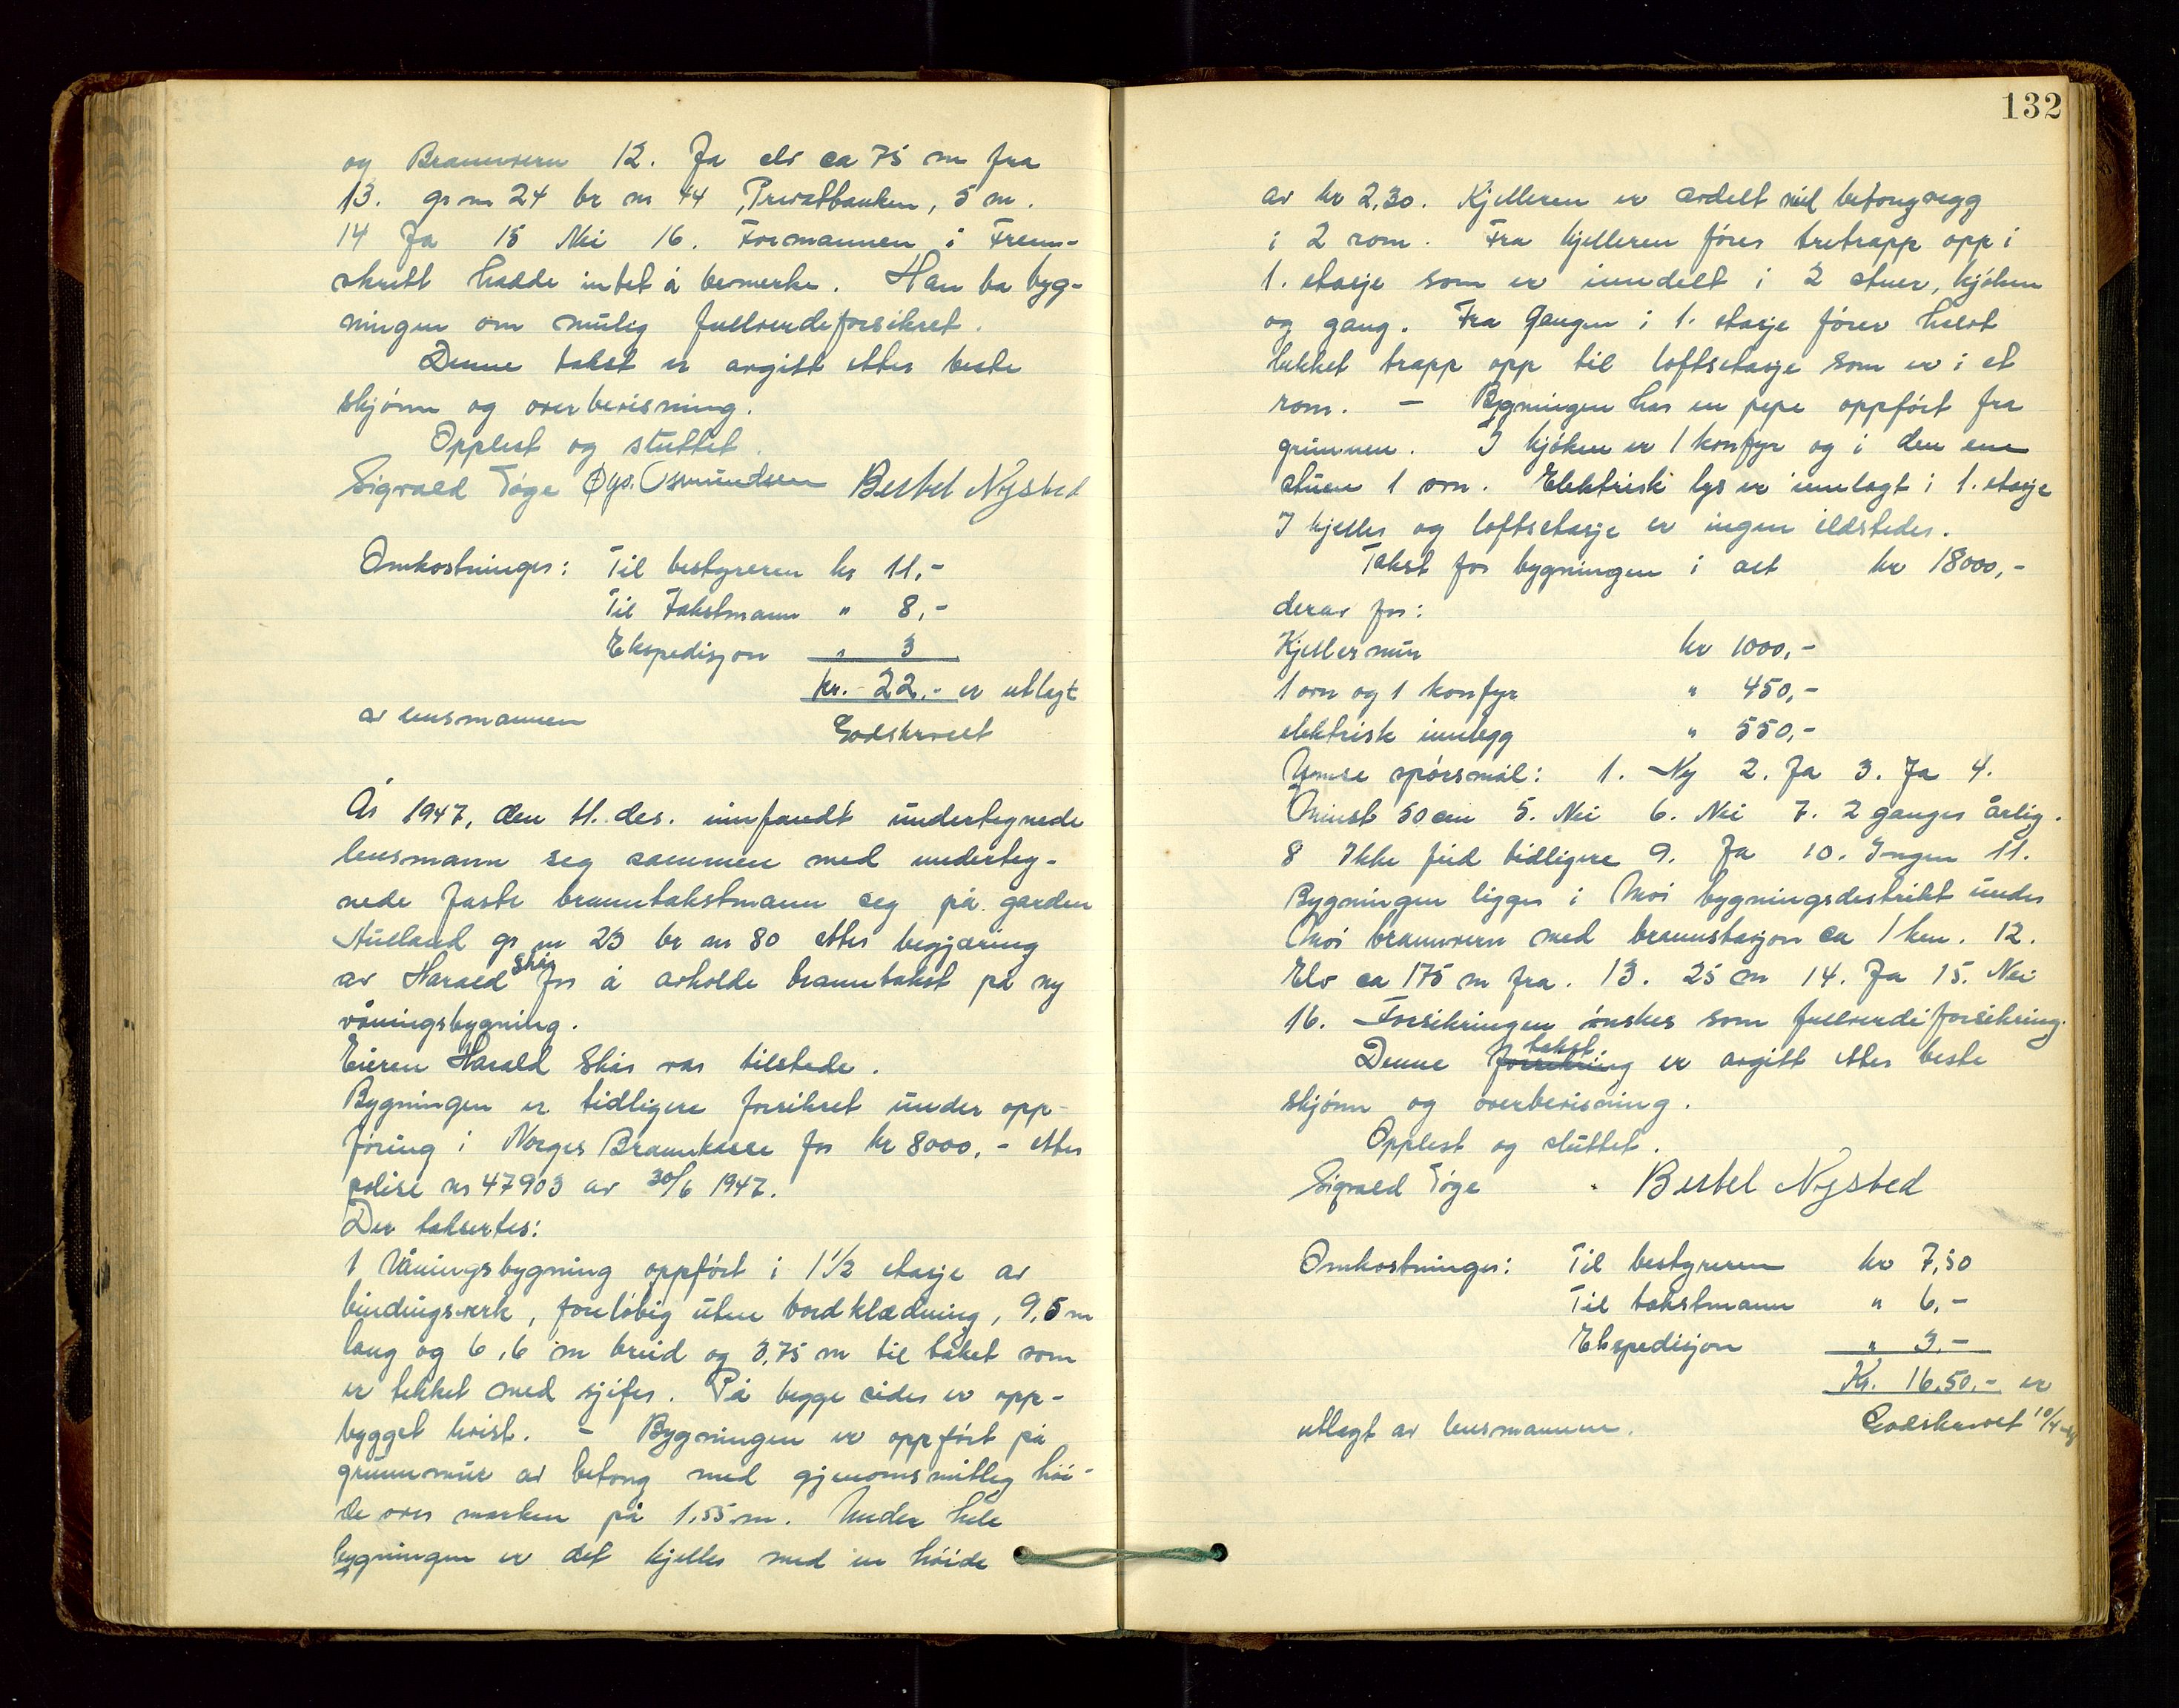 og Brannvern 12. Ja elv ca 75 m fra
13. gr nr 24 br nr 44 „Privatbanken, 5 m.
14 Ja 15 Nei 16. Formannen i Frem-
skritt hadde intet å bemerke. Han ba byg-
ningen om mulig fullverdeforsikret.
Denne takst er avgitt etter beste
skjönn og overbevisning.
Opplest og sluttet.
Sigvald Töge Osmundsen Bertel Nysted
Omkostninger: Til bestyreren kr 11,-
Til Takstmann " 8,-
Ekspedisjon " 3
kr. 22.- er utlagt
av lensmannen
Godskrevet
År 1947, den 11. des. innfandt undertegnede
lensmann seg sammen med underteg-
nede faste branntakstmann seg på garden
gr nr 23 br nr 80 etter begjæring
av Harald Skår for å avholde branntakst på ny
våningsbygning.
Eieren Harald Skår var tilstede.
Bygningen er tidligere forsikret under opp-
föring i Norges Brannkasse for kr 8000,- etter
polise nr 47903 av 30/6 1947.
Der taksertes:
1 Våningsbygning oppfört i 1 1/2 etasje av
bindingsverk, forelöbig uten bordklædning, 9,5 m
lang og 6,6 m breid og 3,75 m til taket som
er tekket med sjifer. På begge sider er opp-
bygget kvist. - Bygningen er oppfört på
grunnmur av betong med gjenomsnitleg höi-
de over marken på 1,55 m. Under hele
bygningen er det kjeller med en höide
132
av kr 2,30. Kjelleren er avdelt med betongvegg
i 2 rom. Fra kjelleren förer tretrapp opp i
1. etasje som er inndelt i 2 stuer, kjöken
og gang. Fra Gangen i 1. etasje förer halvt
lukket trapp opp til loftsetasje som er i et
rom. - Bygningen har en pipe oppfört fra
grunnen. I kjöken er 1 konfyr og i den ene
stuen 1 ovn. Elektrisk lys er innlagt i 1. etasje
I kjeller og loftsetasje er ingen ildsteder.
Takst for bygningen i alt kr 18000,-
derav for:
Kjellermur kr 1000,-
1 ovn og 1 konfyr " 450,-
elektrisk innlegg " 550,-
Ymse spörsmål: 1. Ny 2. Ja 3. Ja 4.
Minst 50 cm 5. Nei 6. Nei 7. 2 ganger årlig.
8 Ikke feid tidligere 9. Ja 10. Ingen 11.
Bygningen ligger i Moi bygningsdistrikt under
Moi brannvern med brannstasjon ca 1 km. 12.
Elv ca 175 m fra. 13. 25 m 14. Ja 15. Nei
16. Forsikringen önskes som fullverdiforsikring.
Denne forsikring takst er avgitt etter beste
skjönn og overbevisning.
Opplest og sluttet.
Sigvald Töge Bertel Nysted
Omkostninger: Til bestyreren kr 7,50
Til takstmann " 6,-
Ekspedisjon " 3,-
Kr. 16,50,- er
utlagt av lensmannen.
Godskrevet 10/4